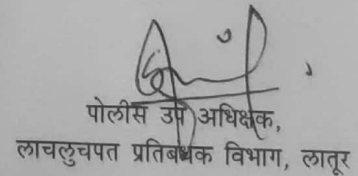 पोलीस उप अधिक्षक,
लाचलुचपत प्रतिबंधक विभाग, लातूर